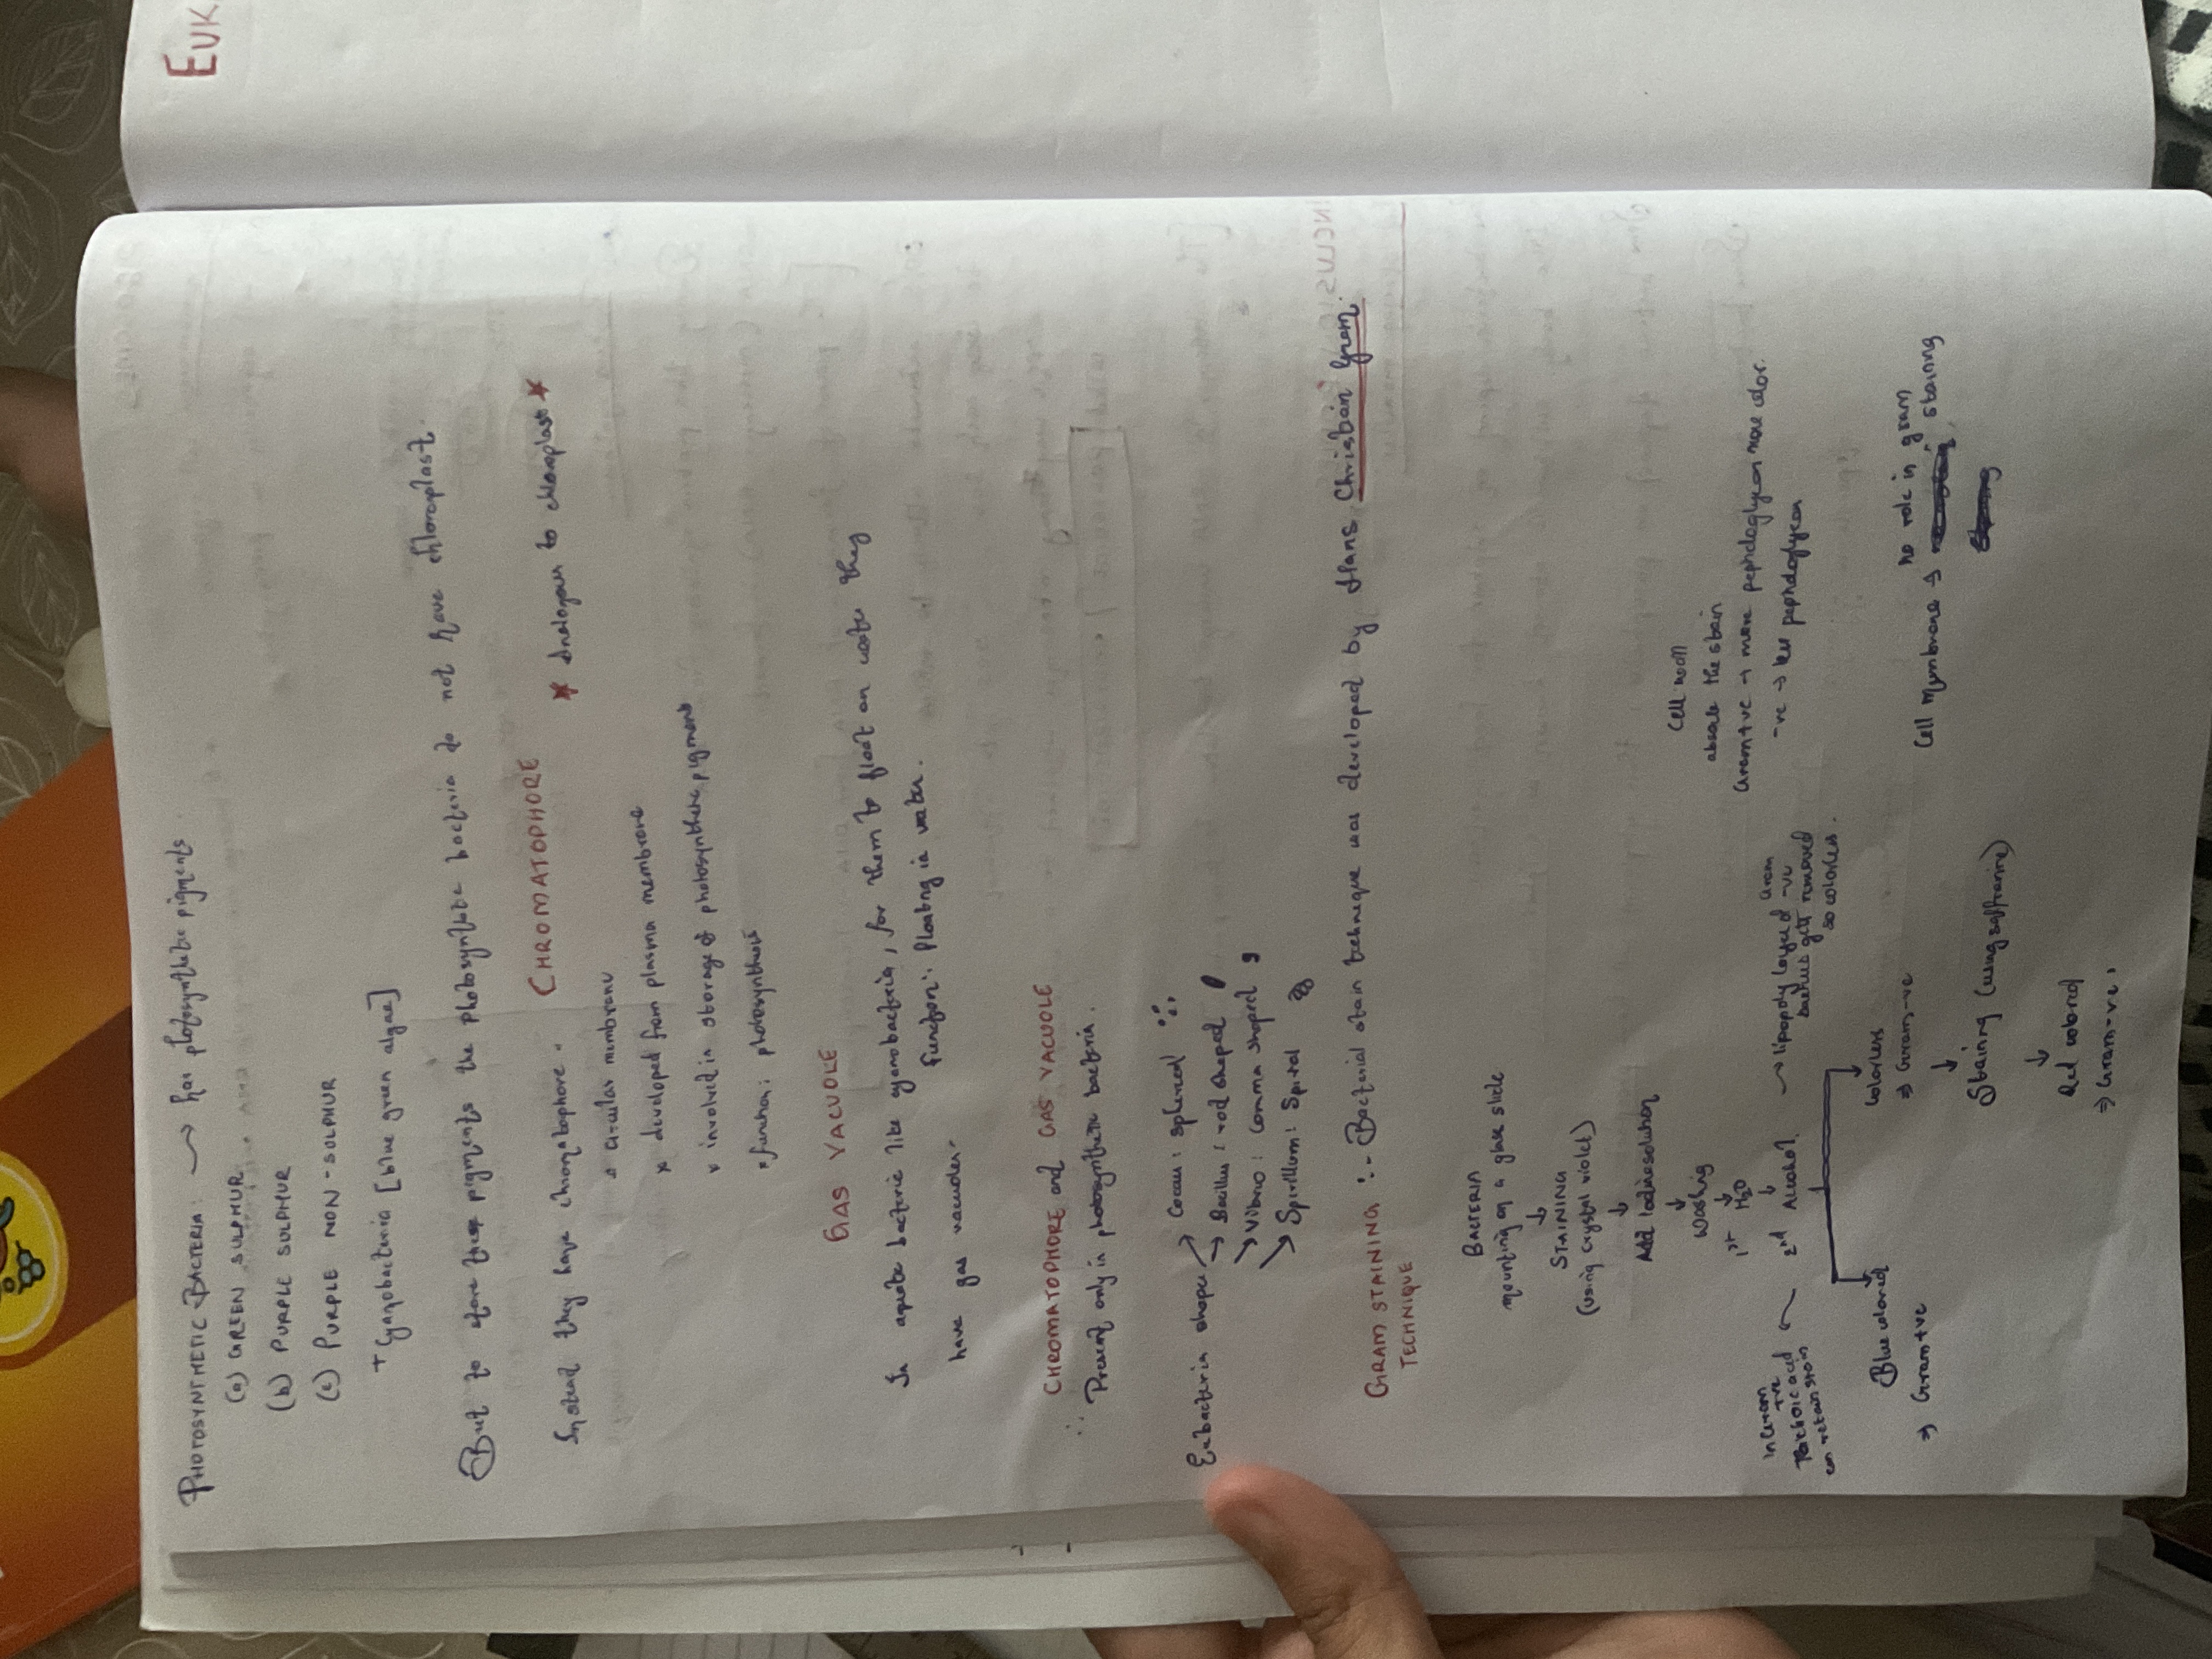 EUK
PHOTOSYNTHETIC BACTERIA: → has photosynthetic pigments.
(a) GREEN SULPHUR
(b) PURPLE SULPHUR
(c) PURPLE NON-SULPHUR
+ Cyanobacteria [blue green algae]
But to store these pigments the photosynthetic bacteria do not have chloroplast.
Instead they have chromatophore.
CHROMATOPHORE
* Analogous to chloroplast *
circular membrane
* developed from plasma membrane
* involved in storage of photosynthetic pigment
* function: photosynthesis
GAS VACUOLE
In aquatic bacteria like cyanobacteria, for them to float on water they
have gas vacuoles.
function: Floating in water.
∴ CHROMATOPHORE and GAS VACUOLE
Present only in photosynthetic bacteria.
Eubacteria shapes → Coccus: spherical
→ Bacillus: rod shaped
→ Vibrio: comma shaped ,
→ Spirillum: Spiral
GRAM STAINING :- Bacterial stain technique was developed by Hans Christian Gram.
TECHNIQUE
BACTERIA
mounting on a glass slide
↓
STAINING
(using crystal violet)
↓
Add Iodine solution
↓
Washing
↓
1st H2O
↓
2nd Alcohol
In Gram +ve
Teichoic acid
can retain stain
→ lipopoly layer of Gram -ve
bacterias gets removed
so colorless.
Blue colored
⇒ Gram +ve
Colorless
⇒ Gram -ve
↓
Staining (using saffranine)
↓
Red colored
⇒ Gram -ve.
Cell wall
absorbs the stain
Gram +ve → more pephdoglycan more color.
-ve → less pephdoglycan
Cell Mumbrane → no role in gram staining